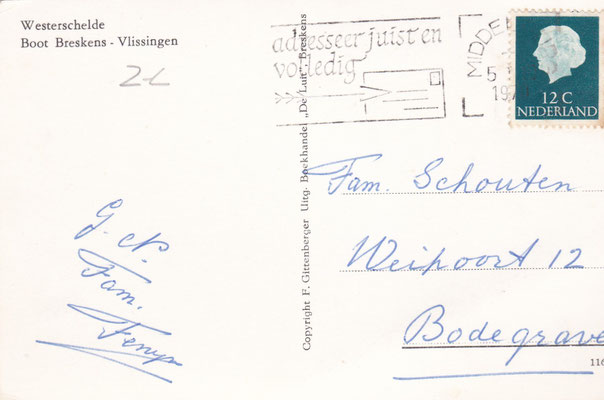 Westerschelde
Boot Breskens - Vlissingen
2-L
adresseer juist en
volledig
MIDDE
5
19
12 C
NEDERLAND
Copyright F. Gittenberger Uitg. Boekhandel „De Luit" Breskens
Fam. Schouten
Weipoort 12
Bodegrave
G. N.
Fam.
116